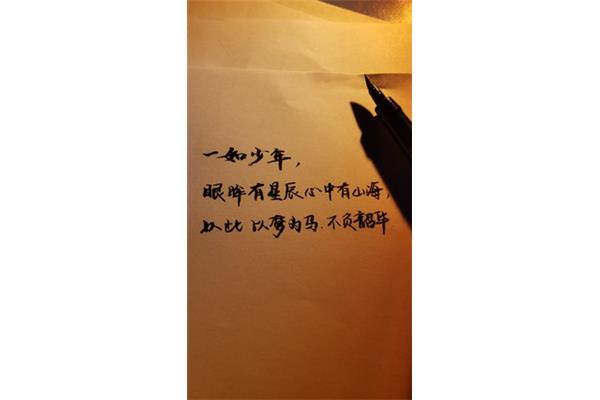 一如少年，
眼眸有星辰心中有山海，
从此以梦为马.不负韶华